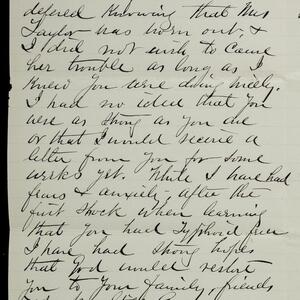 defered knowing that Mrs
Taylor was worn out, &
I did not wish to cause
her trouble as long as I
knew you were doing nicely.
I had no idea that you
were as strong as you are
or that I would receive a
letter from you for some
weeks yet. While I have had
fears & anxiety, after the
first shock when learning
that you had Typhoid fever
I have had strong hopes
that God would restore
you to your family, friends